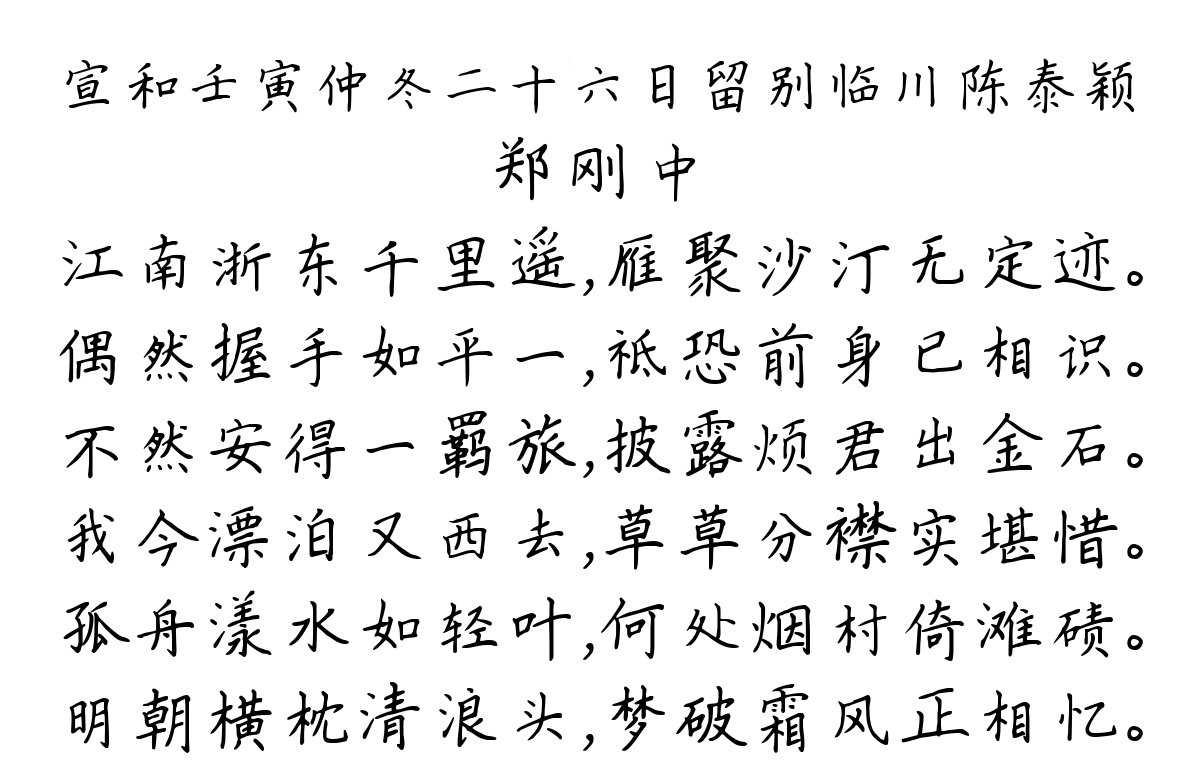 宣和壬寅仲冬二十六日留别临川陈泰颖
郑刚中
江南浙东千里遥,雁聚沙汀无定迹。
偶然握手如平一,祗恐前身已相识。
不然安得一羁旅,披露烦君出金石。
我今漂泊又西去,草草分襟实堪惜。
孤舟漾水如轻叶,何处烟村倚滩碛。
明朝横枕清浪头,梦破霜风正相忆。